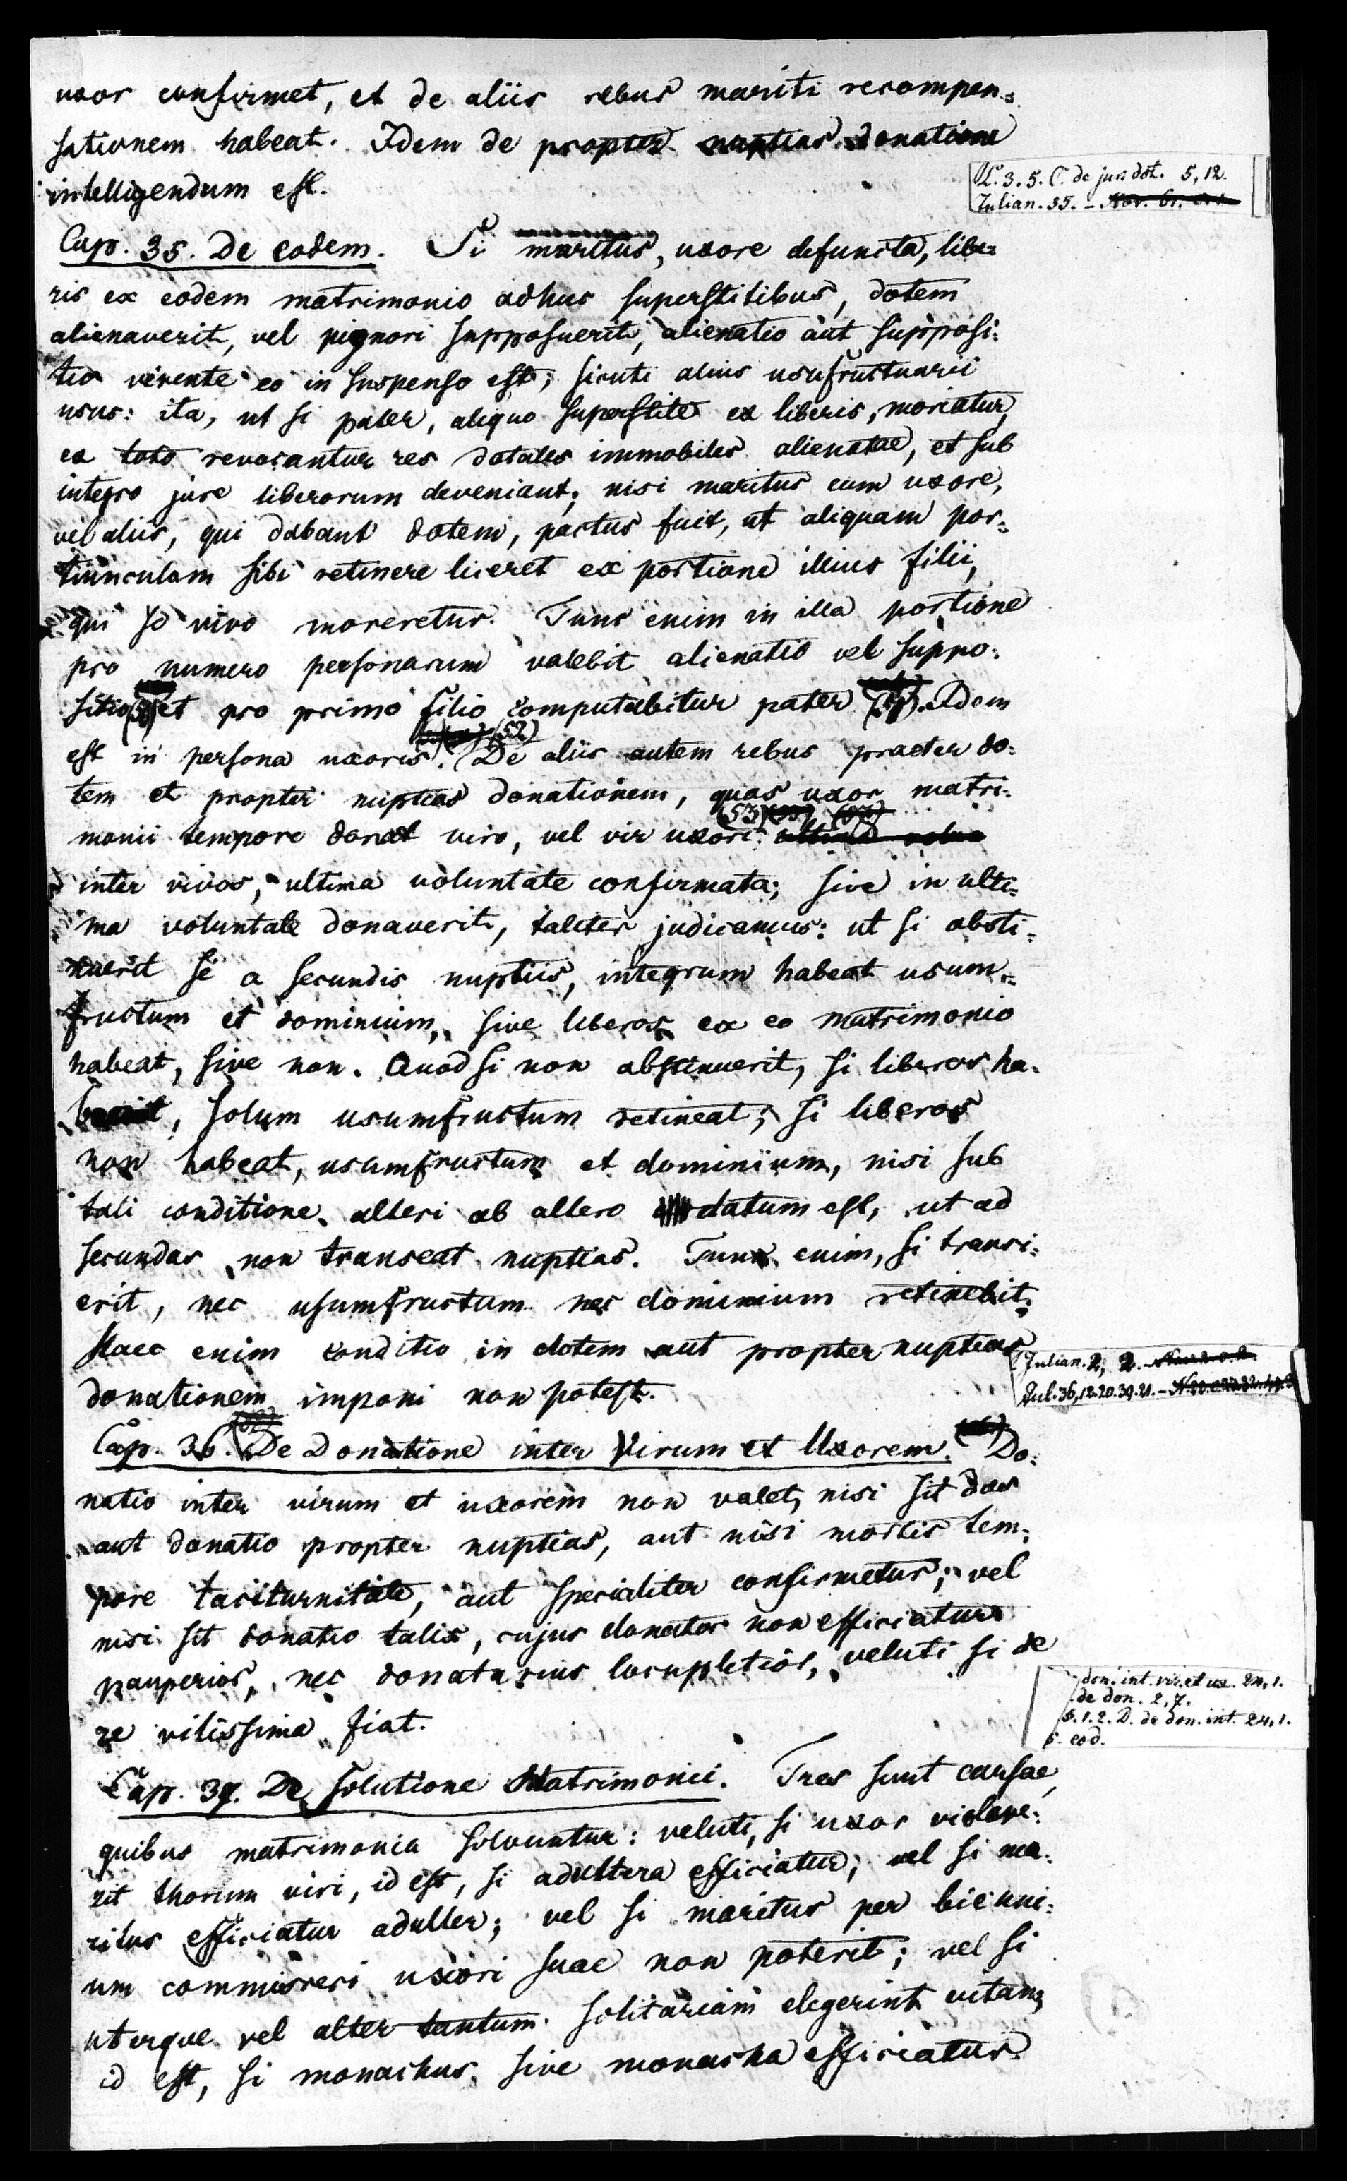 uxor confirmet, et de aliis rebus mariti recompen-
sationem habeat. Idem de propter nuptias donatione
intelligendum est.
L. 3. 5. C. de jur. dot. 5, 12.
Julian. 55. –
Cap. 35. De eodem. Si maritus, uxore defuncta, libe-
ris ex eodem matrimonio adhuc superstitibus, dotem
alienaverit, vel pignori supposuerit, alienatio aut supposi-
tio vivente eo in suspenso est; sicuti alius usufructuarii
usus: ita, ut si pater, aliquo superstite ex liberis, moriatur,
ex toto revocantur res dotales immobiles alienatae, et sub
integro jure liberorum deveniant; nisi maritus cum uxore,
vel aliis, qui dabant dotem, pactus fuit, ut aliquam por-
tiunculam sibi retinere liceret ex portione illius filii,
qui se vivo moreretur. Tunc enim in illa portione
pro numero personarum valebit alienatio vel suppo-
sitio, et pro primo filio computabitur pater. Idem
est in persona uxoris. (52) De aliis autem rebus praeter do-
tem et propter nuptias donationem, quas uxor matri-
monii tempore donat viro, vel vir uxori (53)
inter vivos, ultima voluntate confirmata; sive in ulti-
ma voluntate donaverit, taliter judicamus: ut si absti-
nuerit se a secundis nuptiis, integrum habeat usum-
fructum et dominium, sive liberos ex eo matrimonio
habeat, sive non. Quod si non abstinuerit, si liberos ha-
buerit, solum usumfructum retineat; si liberos
non habeat, usumfructum et dominium, nisi sub
tali conditione alteri ab altero datum est, ut ad
secundas non transeat nuptias. Tunc enim, si transi-
erit, nec usumfructum nec dominium retinebit.
Haec enim conditio in dotem aut propter nuptias
donationem imponi non potest.
Julian. 2, 2. –
Jul. 36, 12. 20. 39. 21. –
Cap. 36. De Donatione inter Virum et Uxorem. Do-
natio inter virum et uxorem non valet, nisi sit dos
aut donatio propter nuptias, aut nisi mortis tem-
pore taciturnitate, aut specialiter confirmetur; vel
nisi sit donatio talis, cujus donator non efficiatur
pauperior, nec donatarius locupletior, veluti si de
re vilissima fiat.
don. int. vir. et ux. 24, 1.
de don. 2, 7.
6. 1. 2. D. de don. int. 24, 1.
eod.
Cap. 37. De solutione Matrimonii. Tres sunt causae,
quibus matrimonia solvuntur: veluti, si uxor violave-
rit thorum viri, id est, si adultera efficiatur; vel si ma-
ritus efficiatur adulter; vel si maritus per bienni-
um commisceri uxori suae non poterit; vel si
uterque vel alter tantum solitariam elegerint vitam,
id est, si monachus sive monacha efficiatur